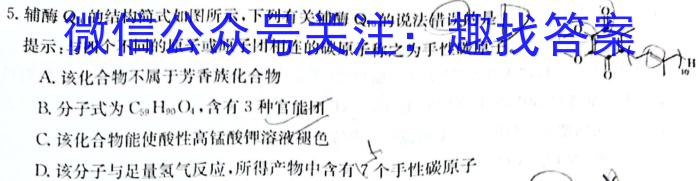 5. 辅酶Q 的结构简式如图所示,下列有关辅酶Q 的说法错误的是
微信公众号关注:趣找答案
提示: 不同的原子或原子团相连的碳原子称之为手性碳原子
A. 该化合物不属于芳香族化合物
B. 分子式为C₅₉H₉₀O₄,含有3种官能团
C. 该化合物能使酸性高锰酸钾溶液褪色
D. 该分子与足量氢气反应,所得产物中含有 7 个手性碳原子
O
O
H
10